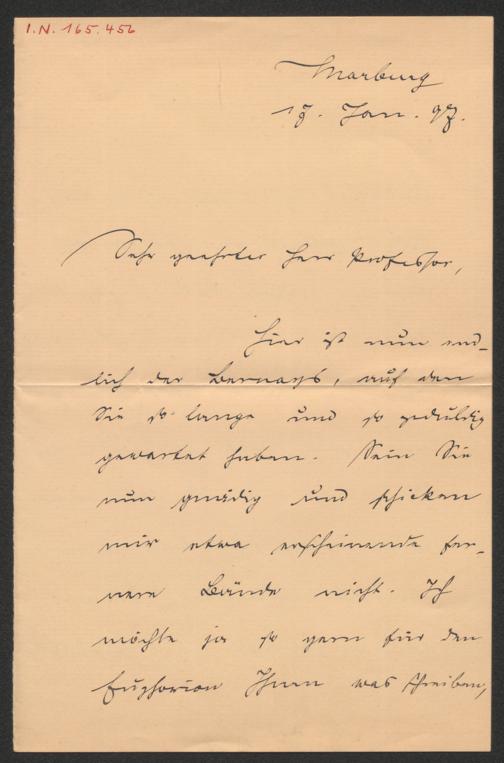 I.N. 165.456
Marburg
17. Jan. 97.
Sehr geehrter Herr Professor,
Hier ist nun end-
lich der Bernays, auf den
Sie so lange und so geduldig
gewartet haben. Sein Sie
nun gnädig und schicken
mir etwa erscheinende fer-
nere Bände nicht. Ich
möchte ja so gern für den
Euphorion Ihnen was schreiben,